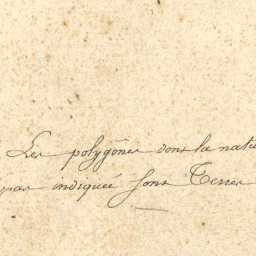 Les polygônes dont la natu
pas indiquée sont Terres